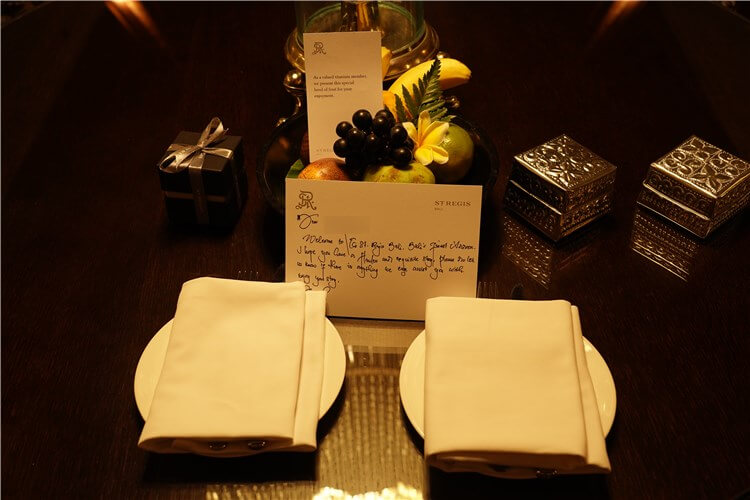 As a valued titanium member,
we present this special
bowl of fruit for your
enjoyment.
ST REGIS
ST REGIS
BALI
Dear
Welcome to The St. Regis Bali, Bali's finest
I hope you have a and exquisite stay, please do let
us know if there is anything we can assist you with
enjoy your stay.